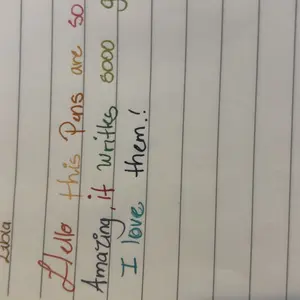 Hello this Pens are so
Amazing, it writtes sooo g
I love them.!